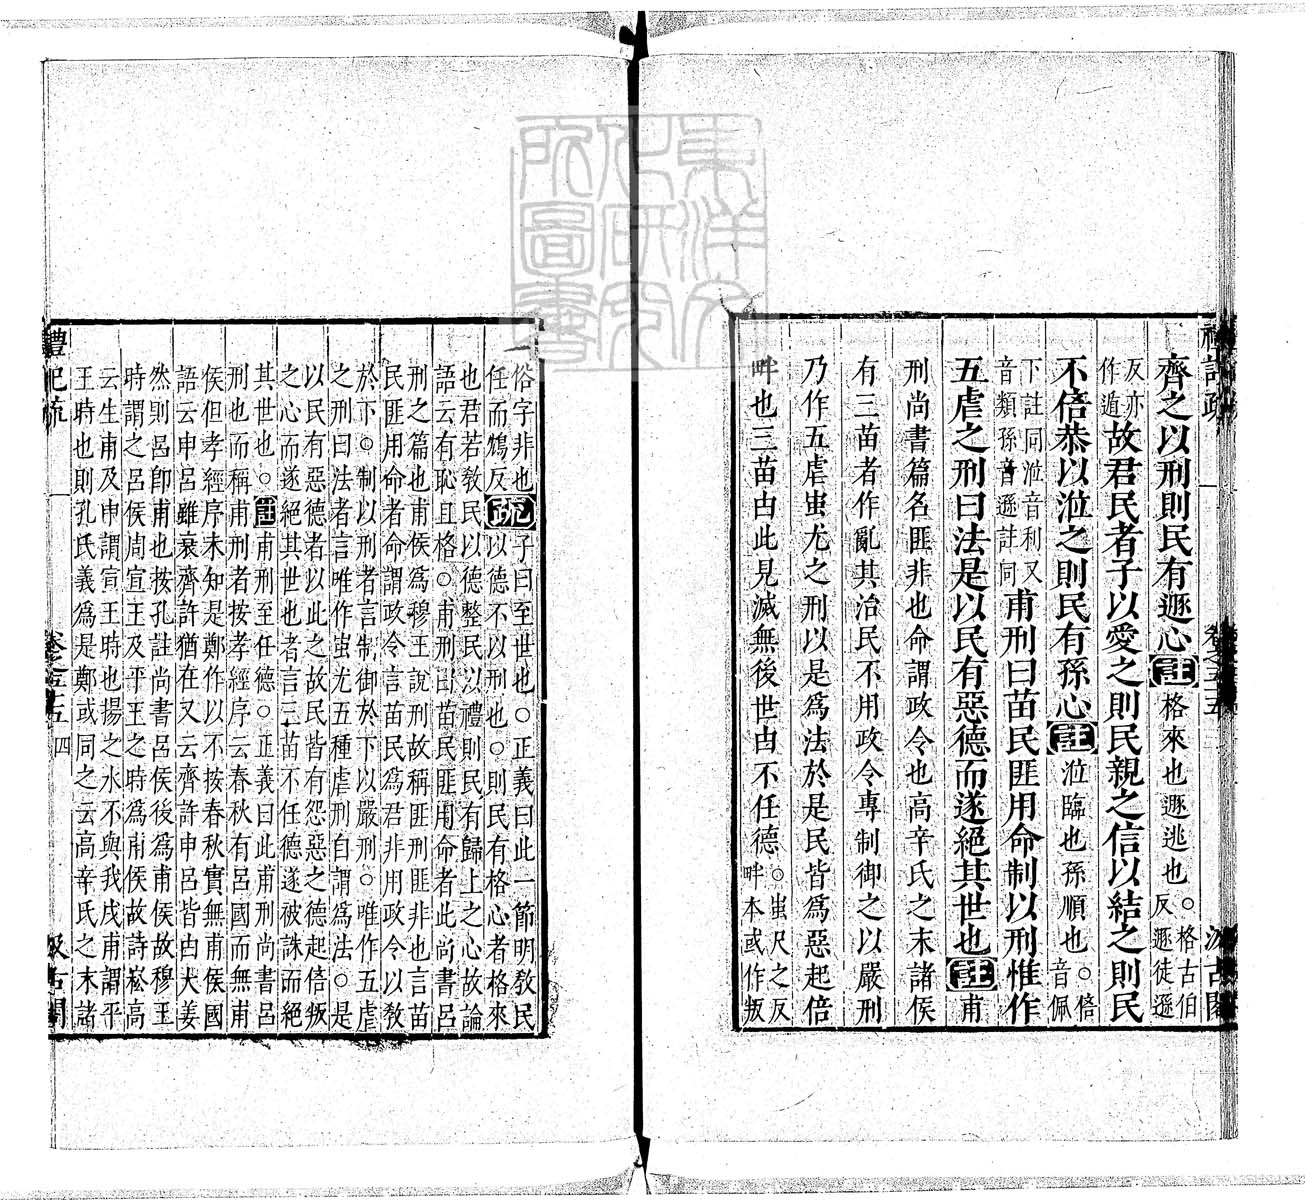 齊之以刑則民有遯心註格來也遯逃也○格古伯反遯徒遜
反亦作遁故君民者子以愛之則民親之信以結之則民
不倍恭以涖之則民有孫心註涖臨也孫順也○倍音佩
下註同涖音利又音類孫音遜註同甫刑曰苗民匪用命制以刑惟作
五虐之刑曰法是以民有惡德而遂絕其世也註甫
刑尚書篇名匪非也命謂政令也高辛氏之末諸侯
有三苗者作亂其治民不用政令專制御之以嚴刑
乃作五虐蚩尤之刑以是爲法於是民皆爲惡起倍
畔也三苗由此見滅無後世由不任德○蚩尺之反畔本或作叛
俗字非也任而鴆反疏子曰至世也○正義曰此一節明敎民
以德不以刑也○則民有格心者格來
也君若敎民以德整民以禮則民有歸上之心故論
語云有恥且格○甫刑曰苗民匪用命者此尚書呂
刑之篇也甫侯爲穆王說刑故稱匪刑匪非也言苗
民匪用命者命謂政令言苗民爲君非用政令以敎
於下○制以刑者言制御於下以嚴刑○唯作五虐
之刑曰法者言唯作蚩尤五種虐刑自謂爲法○是
以民有惡德者以此之故民皆有怨惡之德起倍叛
之心而遂絕其世也者言三苗不任德遂被誅而絕
其世也○註甫刑至任德○正義曰此甫刑尚書呂
刑也而稱甫刑者按孝經序云春秋有呂國而無甫
侯但孝經序未知是鄭作以不按春秋實無甫侯國
語云申呂雖衰齊許猶在又云齊許申呂皆由大姜
然則呂卽甫也按孔註尚書呂侯後爲甫侯故穆王
時謂之呂侯周宣王及平王之時爲甫侯故詩崧高
云生甫及申謂宣王時也揚之水不與我戍甫謂平
王時也則孔氏義爲是鄭或同之云高辛氏之末諸
禮記疏 卷之五十五 四 汲古閣